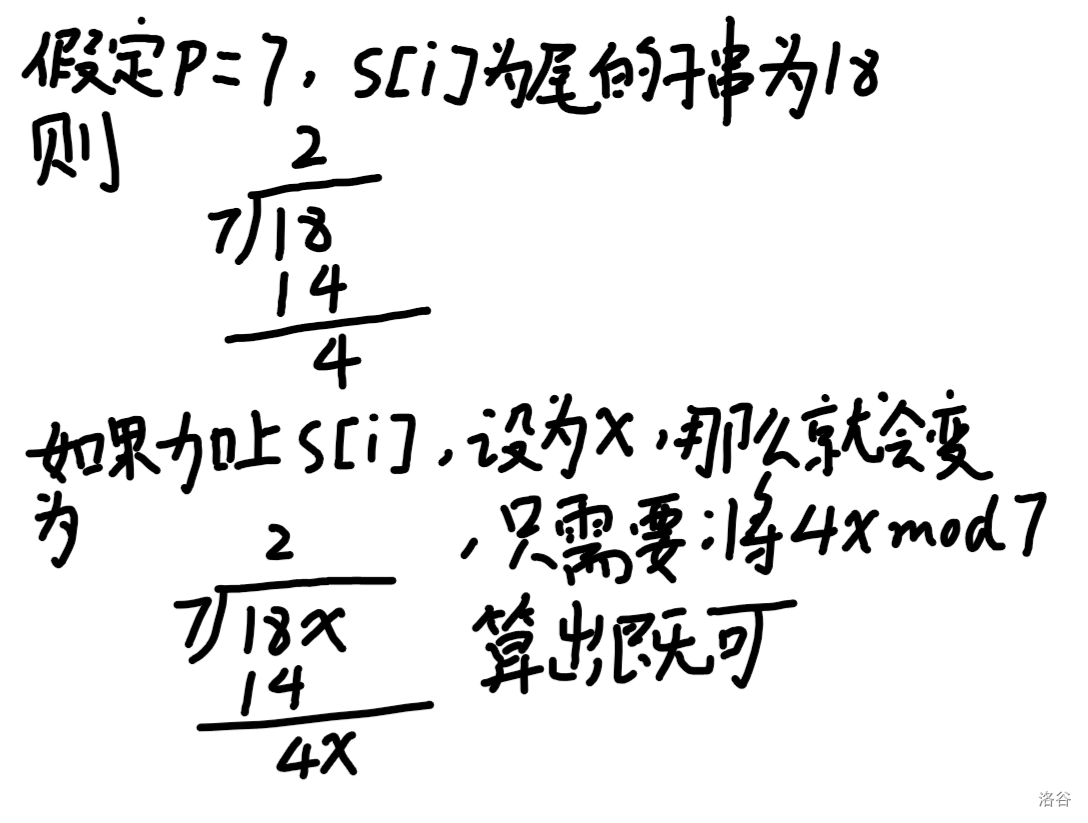 假定P=7，S[i]为尾的子串为18
则
2
7 18
14
4
如果加上S[i]，设为x，那么就会变
为
2
，只需要将4x mod 7
7 18x
算出既可
14
4x
洛谷